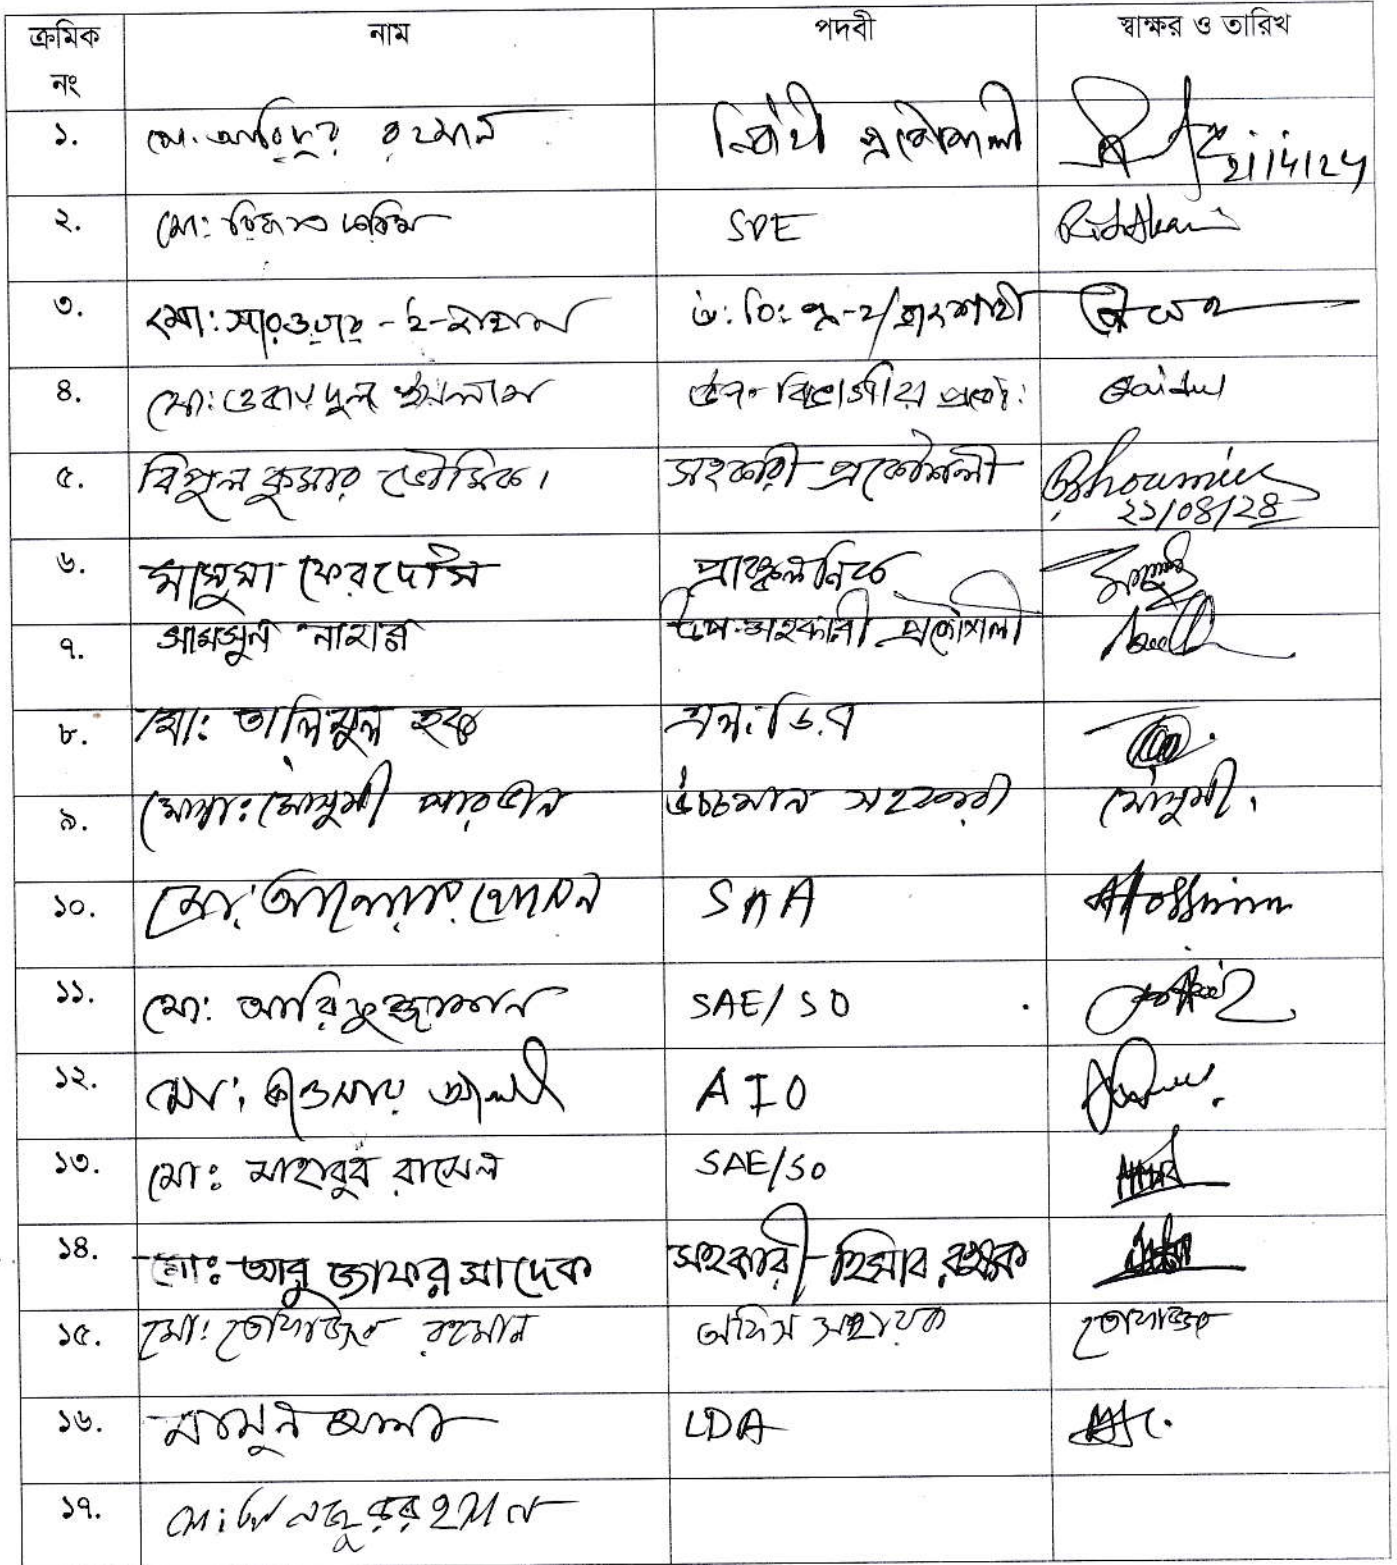 ক্রমিক নং নাম পদবী স্বাক্ষর ও তারিখ
১. মো. আরিফুর রহমান নির্বাহী প্রকৌশলী 21/4/24
২. মো: SDE
৩. মো: সারওয়ার-ই-জাহান
৪. মো: ওবায়দুল ইসলাম উপ-বিভাগীয় প্রকৌ: Oaidul
৫. বিপুল কুমার ভৌমিক। সহকারী প্রকৌশলী Bhoumick
২১/০৪/২৪
৬. মাসুমা ফেরদৌস প্রাক্কলনিক
৭. সামসুন নাহার উপ-সহকারী প্রকৌশলী
৮. মো: তালিমুল হক এল.ডি.এ
৯. মোসা: মৌসুমী পারভীন উচ্চমান সহকারী মৌসুমী।
১০. মো: আনোয়ার হোসেন
১১. মো: আরিফুজ্জামান SAE/SO
১২. মো: কাওসার আলী AIO
১৩. মো: মাহাবুব রাসেল SAE/SO
১৪. মো: আবু জাফর সাদেক সহকারী হিসাব রক্ষক
১৫. মো: তোফাজ্জল রহমান অফিস সহায়ক তোফাজ্জল
১৬. মামুন LDA
১৭. মো: